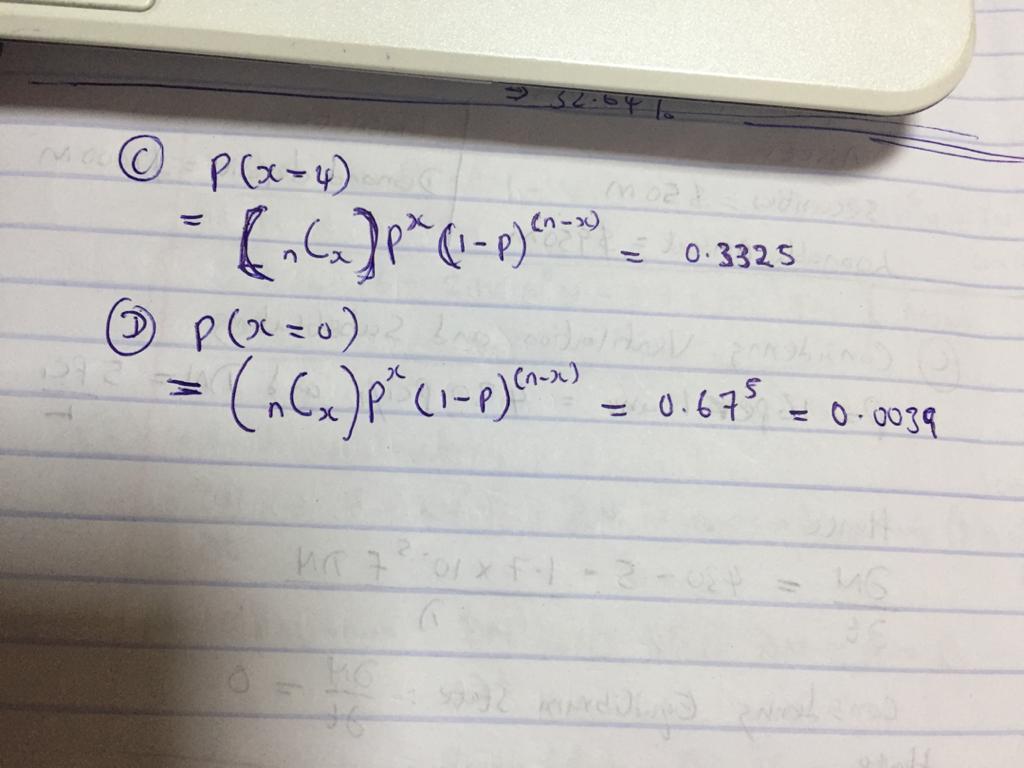 ⇒ 32.64%
Ⓒ P(x=4)
= [nCx] p^x (1-p)^(n-x) = 0.3325
Ⓓ P(x=0)
= (nCx) p^x (1-p)^(n-x) = 0.67^5 = 0.0039